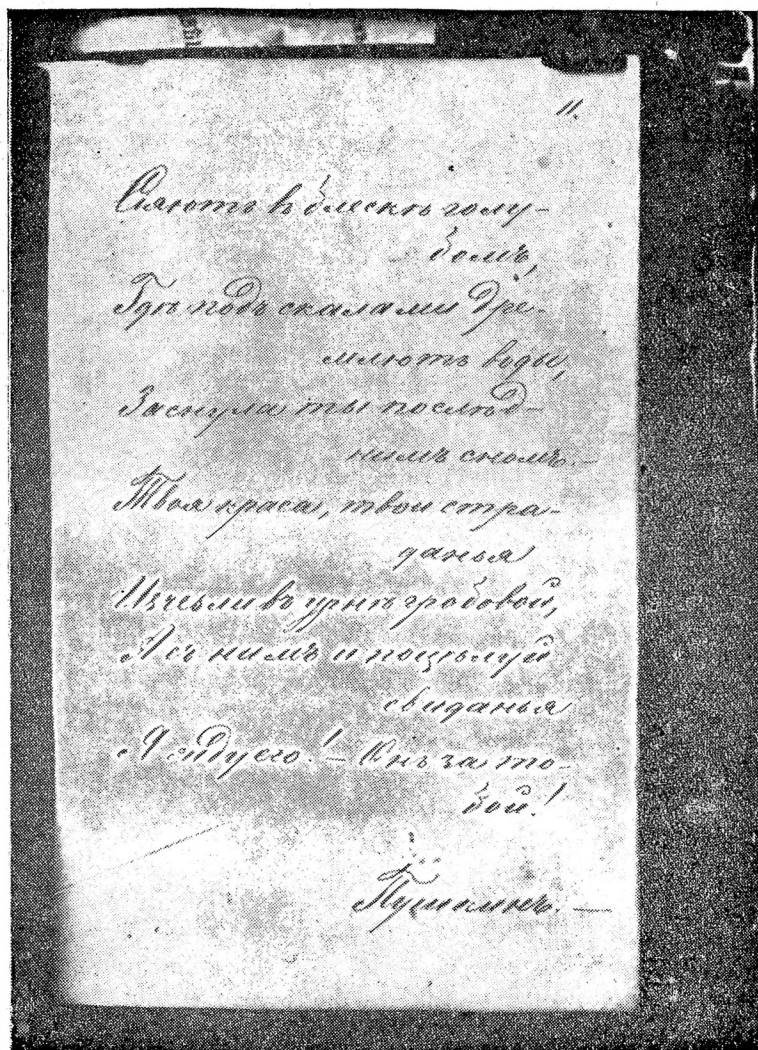 11.
Сіяютъ въ блескѣ голу-
бомъ,
Гдѣ подъ скалами дре-
млютъ воды,
Заснула ты послѣд-
нимъ сномъ. —
Твоя краса, твои стра-
данья
Изчезли въ урнѣ гробовой,
А съ нимъ и поцѣлуй
свиданья
Я жду его! — Онъ за то-
бой!
Пушкинъ. —